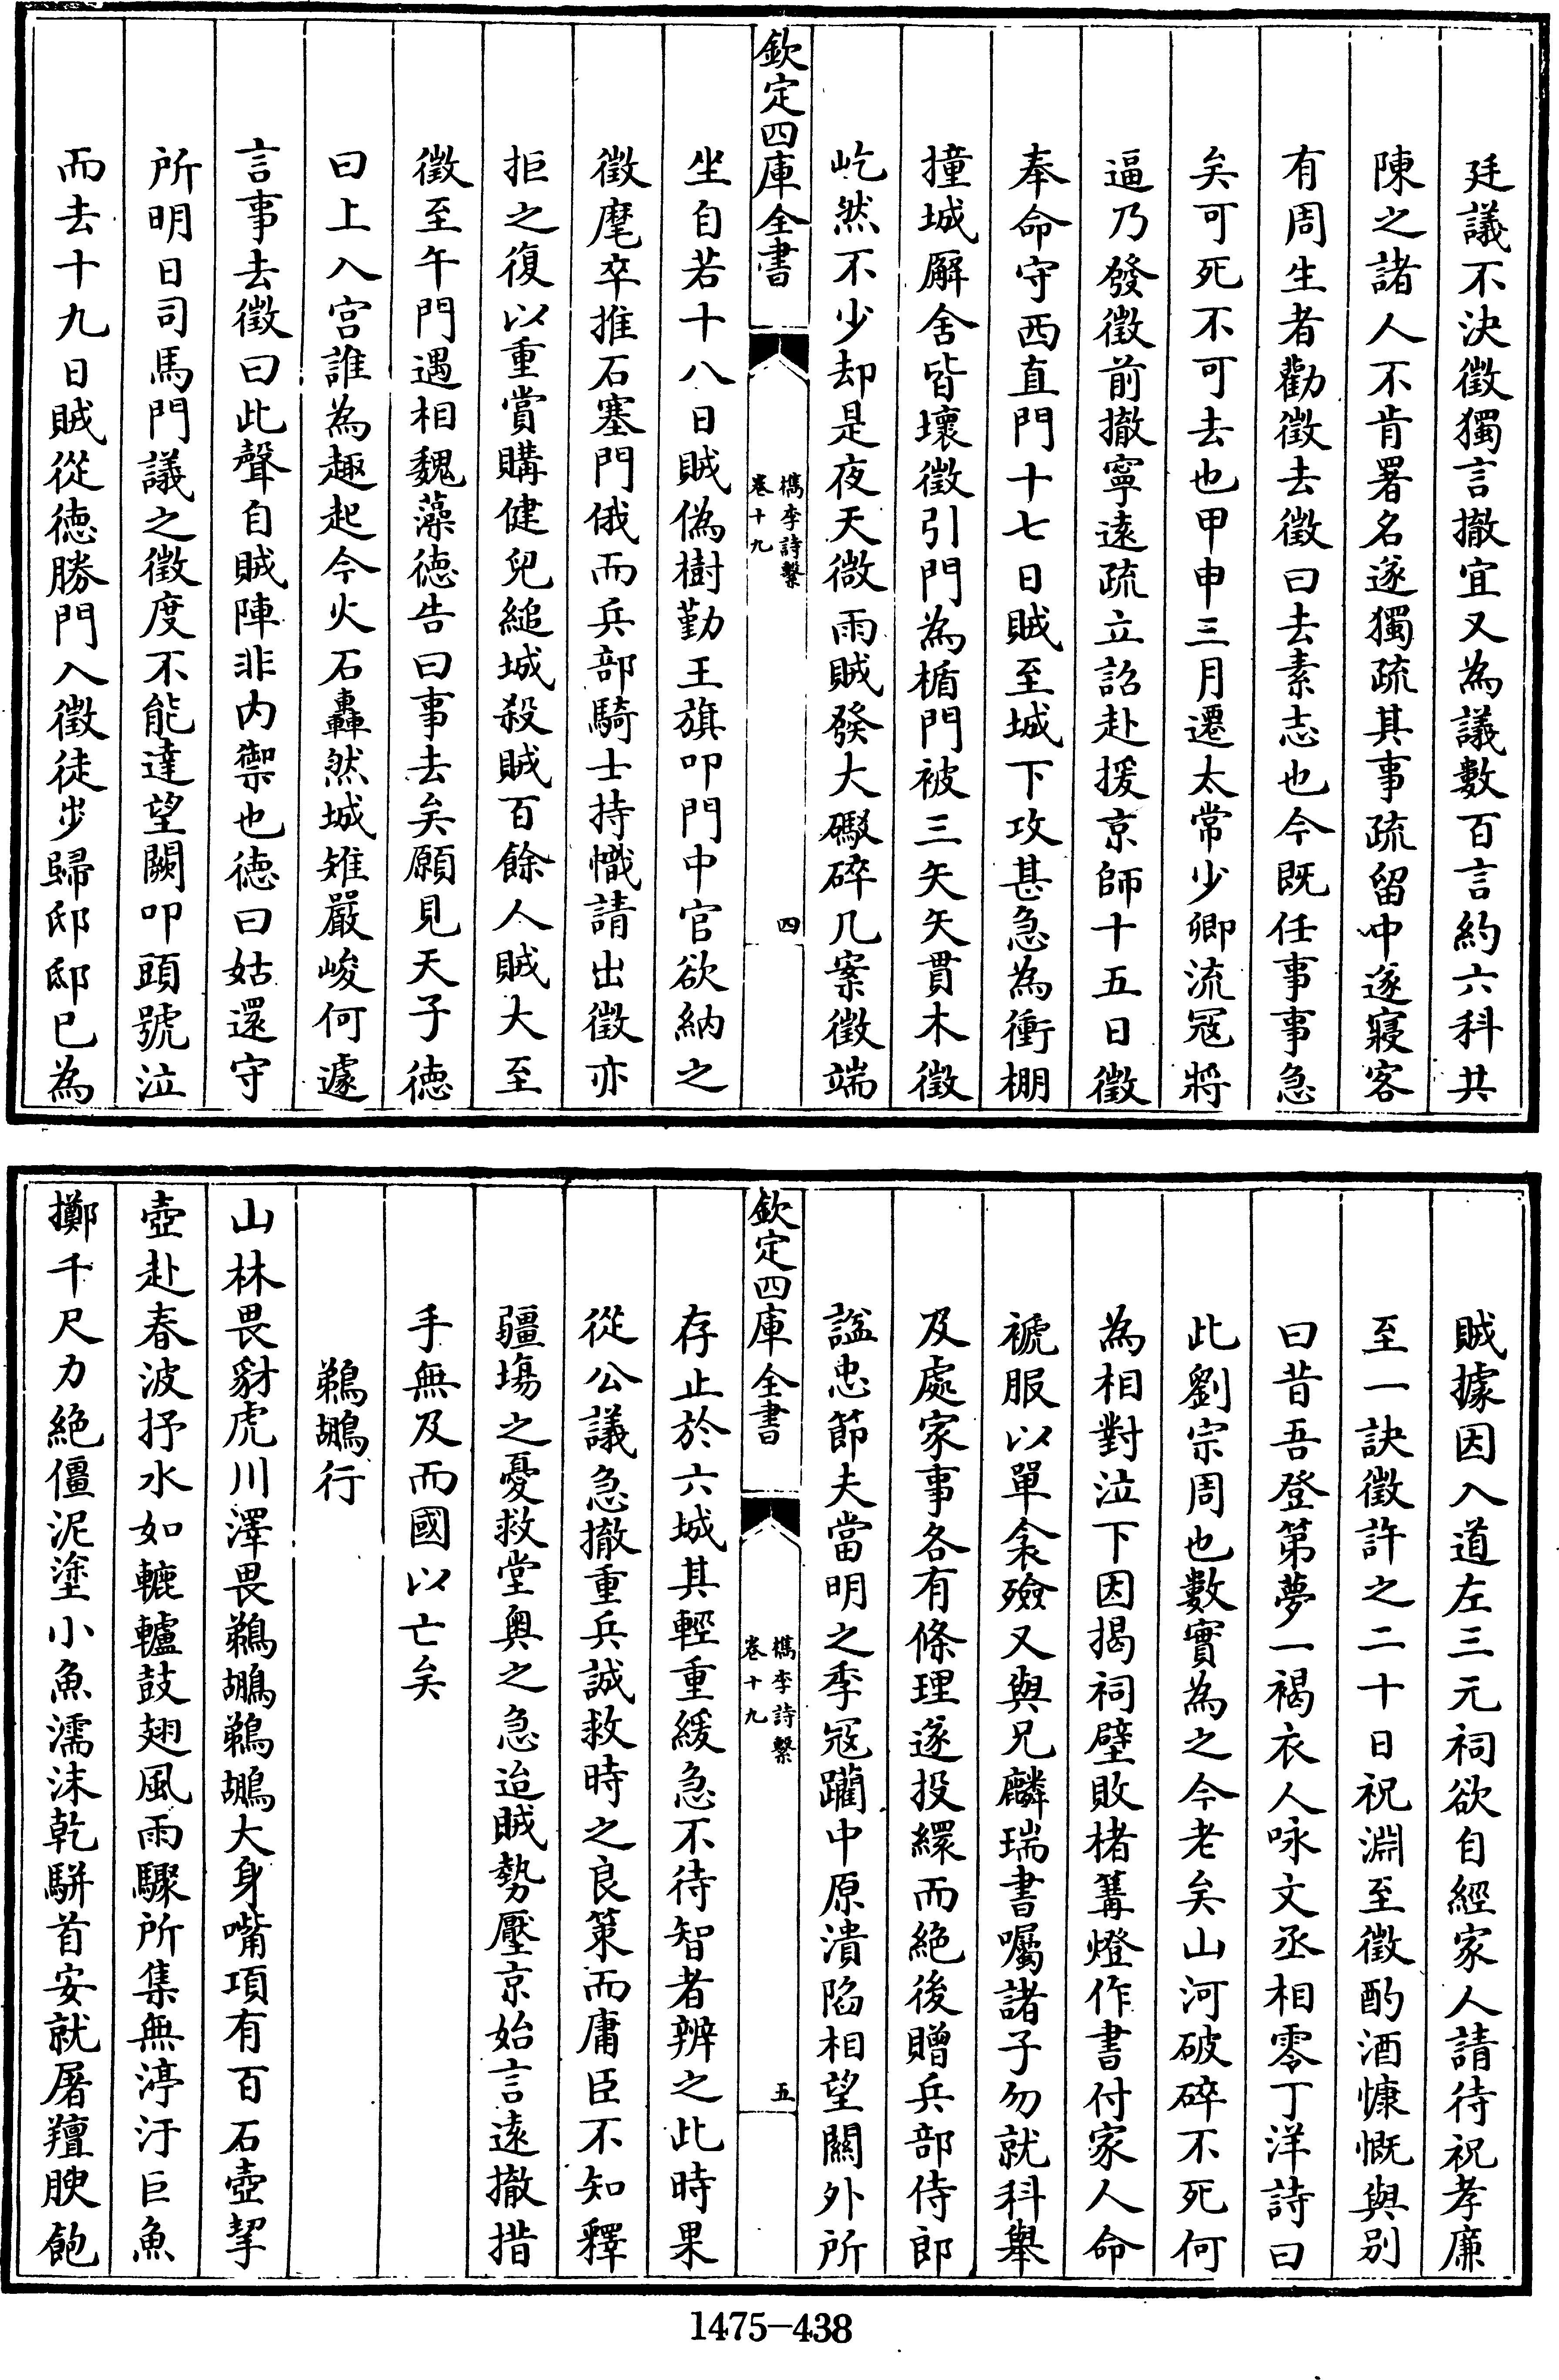 廷議不決徵獨言撤宜又為議數百言約六科共
陳之諸人不肯署名遂獨疏其事疏留中遂寢客
有周生者勸徵去徵曰去素志也今既任事事急
矣可死不可去也甲申三月遷太常少卿流冦將
逼乃發徵前撤寧遠疏立詔赴援京師十五日徵
奉命守西直門十七日賊至城下攻甚急為衝棚
撞城廨舍皆壞徵引門為楯門被三矢矢貫木徵
屹然不少却是夜天微雨賊發大礟碎几案徵端
欽定四庫全書
檇李詩繫
卷十九
四
坐自若十八日賊偽樹勤王旗叩門中官欲納之
徵麾卒推石塞門俄而兵部騎士持幟請出徵亦
拒之復以重賞購健兒縋城殺賊百餘人賊大至
徵至午門遇相魏藻徳告曰事去矣願見天子徳
曰上入宫誰為趣起今火石轟然城雉嚴峻何遽
言事去徵曰此聲自賊陣非内禦也徳曰姑還守
所明日司馬門議之徵度不能達望闕叩頭號泣
而去十九日賊從徳勝門入徵徒步歸邸邸已為
賊據因入道左三元祠欲自經家人請待祝孝廉
至一訣徵許之二十日祝淵至徵酌酒慷慨與别
曰昔吾登第夢一褐衣人咏文丞相零丁洋詩曰
此劉宗周也數實為之今老矣山河破碎不死何
為相對泣下因揭祠壁敗楮篝燈作書付家人命
褫服以單衾殮又與兄麟瑞書囑諸子勿就科舉
及處家事各有條理遂投繯而絶後贈兵部侍郎
諡忠節夫當明之季冦躪中原潰陷相望關外所
欽定四庫全書
檇李詩繫
卷十九
五
存止於六城其輕重緩急不待智者辨之此時果
從公議急撤重兵誠救時之良策而庸臣不知釋
疆埸之憂救堂奥之急迨賊勢壓京始言遠撤措
手無及而國以亡矣
鵜鶘行
山林畏豺虎川澤畏鵜鶘鵜鶘大身嘴項有百石壺挈
壺赴春波抒水如轆轤鼓翅風雨驟所集無渟汙巨魚
擲千尺力絶僵泥塗小魚濡沫乾駢首安就屠羶腴飽
1475—438